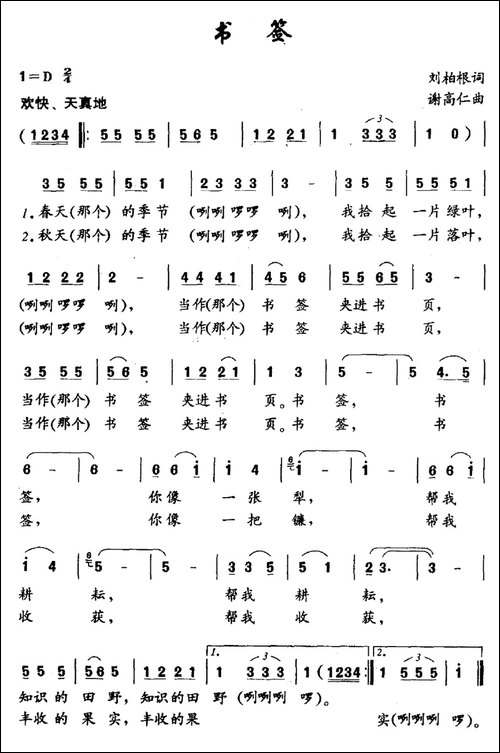 书签
1=D 2/4
刘柏根词
欢快、天真地
谢高仁曲
(1234 ‖: 55 55 | 565 | 12 21 | 1 333 | 1 0) |
35 55 | 55 1 | 23 33 | 3 - | 35 5 | 55 51 |
1.春天(那个)的季节 (咧咧啰啰 咧), 我拾起 一片绿叶,
2.秋天(那个)的季节 (咧咧啰啰 咧), 我拾起 一片落叶,
12 22 | 2 - | 44 41 | 456 | 55 65 | 3 - |
(咧咧啰啰 咧), 当作(那个) 书签 夹进书 页,
(咧咧啰啰 咧), 当作(那个) 书签 夹进书 页,
35 55 | 565 | 12 21 | 1 3 | 5 - | 5 4.5 |
当作(那个)书签 夹进书 页。书 签, 书
当作(那个)书签 夹进书 页。书 签, 书
6 - | 6 - | 66 i | i 4 | i - | i - | 66 i |
签, 你像 一张 犁, 帮我
签, 你像 一把 镰, 帮我
i 4 | 5 - | 5 - | 33 5 | 5 1 | 23. | 3 - |
耕 耘, 帮我 耕 耘,
收 获, 帮我 收 获,
55 5 | 65 5 | 12 21 | 1. 1 333 | 1 (1234) :‖ 2. 1 555 | i - ‖
知识的 田 野, 知识的田 野 (咧咧咧 啰)。
丰收的 果 实, 丰收的果 实(咧咧咧 啰)。